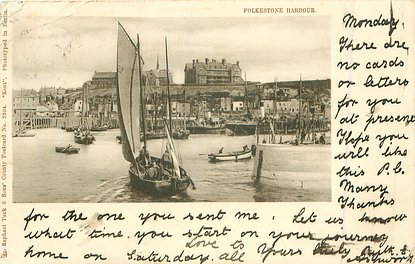 FOLKESTONE HARBOUR.
Monday.
There are
no cards
or letters
for you
at present
Hope you
will like
this P.C.
Many
Thanks
for the one you sent me. Let us know
what time you start on your journey
home on Saturday. Love to all Yours truly
Raphael Tuck & Sons' County Postcard No. "Kent". Phototyped in Berlin.